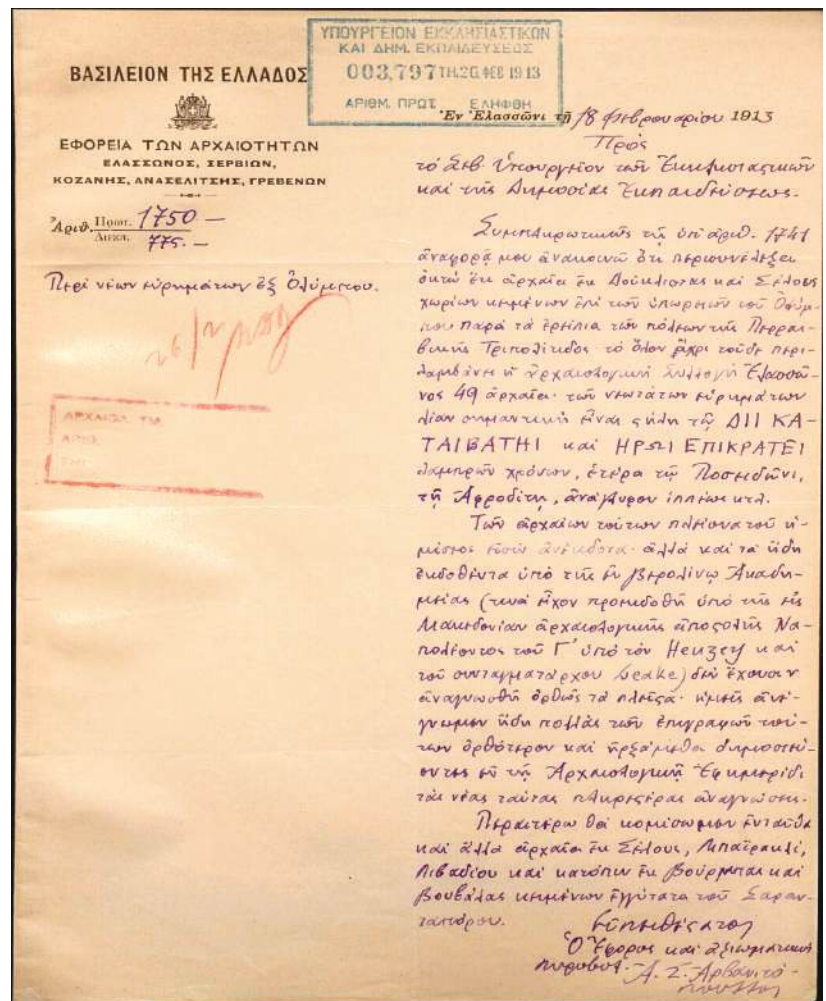 ΥΠΟΥΡΓΕΙΟΝ ΕΚΚΛΗΣΙΑΣΤΙΚΩΝ
ΚΑΙ ΔΗΜ. ΕΚΠΑΙΔΕΥΣΕΩΣ
003,797 ΤΗ. 26 ΦΕΒ 1913
ΑΡΙΘΜ. ΠΡΩΤ. ΕΛΗΦΘΗ
ΒΑΣΙΛΕΙΟΝ ΤΗΣ ΕΛΛΑΔΟΣ
ΕΦΟΡΕΙΑ ΤΩΝ ΑΡΧΑΙΟΤΗΤΩΝ
ΕΛΑΣΣΩΝΟΣ, ΣΕΡΒΙΩΝ,
ΚΟΖΑΝΗΣ, ΑΝΑΣΕΛΙΤΣΗΣ, ΓΡΕΒΕΝΩΝ
Ἀριθ. Πρωτ. 1750 —
Διεκπ. 775. —
Περὶ νέων εὑρημάτων ἐξ Ὀλύμπου.
26/2
ΑΡΧΑΙΟΛ. ΤΜ.
ΑΡΙΘ.
Ἐν Ἐλασσῶνι τῇ 18 Φεβρουαρίου 1913
Πρὸς
τὸ Σεβ. Ὑπουργεῖον τῶν Ἐκκλησιαστικῶν
καὶ τῆς Δημοσίας Ἐκπαιδεύσεως.
Συμπληρωτικῶς τῇ ὑπ' ἀριθ. 1741
ἀναφορᾷ μου ἀνακοινῶ ὅτι περισυνέλεξα
ὀκτὼ ἔτι ἀρχαῖα ἐκ Δούκλιστας καὶ Σέλους
χωρίων κειμένων ἐπὶ τῶν ὑπωρειῶν τοῦ Ὀλύμ-
που παρὰ τὰ ἐρείπια τῶν πόλεων τῆς Περραι-
βικῆς Τριπολίτιδος τὸ ὅλον ἄχρι τοῦδε περι-
λαμβάνει ἡ ἀρχαιολογικὴ συλλογὴ Ἐλασσῶ-
νος 49 ἀρχαῖα· τῶν νεωτάτων εὑρημάτων
λίαν σημαντικὴ εἶναι στήλη τῷ ΔΙΙ ΚΑ-
ΤΑΙΒΑΤΗΙ καὶ ΗΡΩΙ ΕΠΙΚΡΑΤΕΙ
λαμπρῶν χρόνων, ἑτέρα τῷ Ποσειδῶνι,
τῇ Ἀφροδίτῃ, ἀνάγλυφον ἱππέως κτλ.
Τῶν ἀρχαίων τούτων πλείονα τοῦ ἡ-
μίσεος εἶσιν ἀνέκδοτα· ἀλλὰ καὶ τὰ ἤδη
ἐκδοθέντα ὑπὸ τῆς ἐν Βερολίνῳ Ἀκαδη-
μείας (τινὰ εἶχον προεκδοθῆ ὑπὸ τῆς εἰς
Μακεδονίαν ἀρχαιολογικῆς ἀποστολῆς Να-
πολέοντος τοῦ Γ΄ ὑπὸ τὸν Heuzey καὶ
τοῦ συνταγματάρχου Leake) δὲν ἔχουσιν
ἀναγνωσθῆ ὀρθῶς τὰ πλεῖστα· ἡμεῖς ἀνέ-
γνωμεν ἤδη πολλὰς τῶν ἐπιγραφῶν τού-
των ὀρθότερον καὶ ἠρξάμεθα δημοσιεύ-
οντες ἐν τῇ Ἀρχαιολογικῇ Ἐφημερίδι
τὰς νέας ταύτας πληρεστέρας ἀναγνώσεις.
Περαιτέρω θὰ κομίσωμεν ἐνταῦθα
καὶ ἄλλα ἀρχαῖα ἐκ Σέλους, Μπαϊρακλί,
Λιβαδίου καὶ κατόπιν ἐκ Βούρμπας καὶ
Βουβάλας κειμένων ἐγγύτατα τοῦ Σαραν-
ταπόρου.
Εὐπειθέστατος
Ὁ Ἔφορος καὶ ἀξιωματικὸς
πυροβολ. Α. Σ. Ἀρβανιτό-
πουλλος